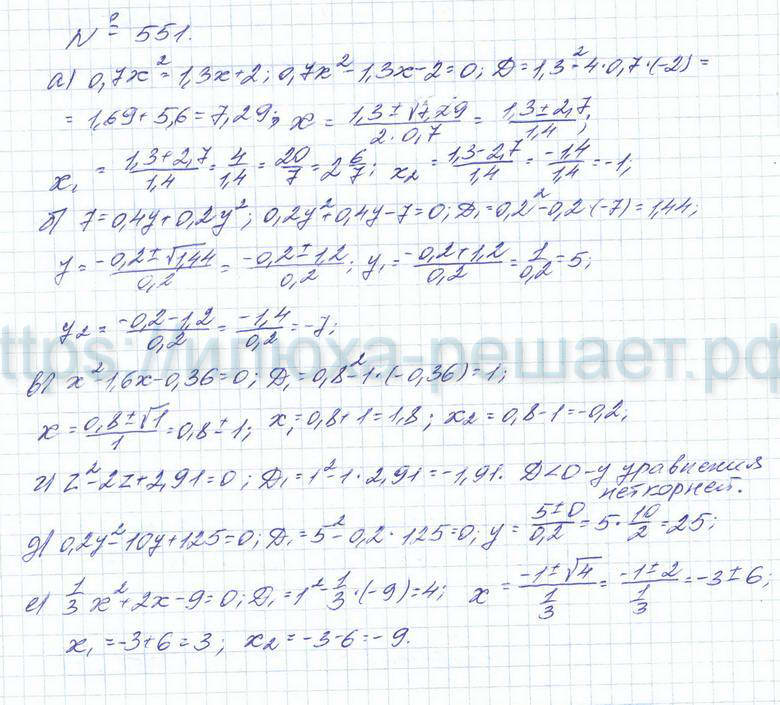 № 551.
а) 0,7x² = 1,3x+2; 0,7x² - 1,3x - 2 = 0; D = 1,3² - 4·0,7·(-2) =
= 1,69 + 5,6 = 7,29; x = (1,3 ± √7,29)/(2·0,7) = (1,3 ± 2,7)/1,4;
x₁ = (1,3+2,7)/1,4 = 4/1,4 = 20/7 = 2 6/7; x₂ = (1,3-2,7)/1,4 = -1,4/1,4 = -1;
б) 7 = 0,4y + 0,2y²; 0,2y² + 0,4y - 7 = 0; D₁ = 0,2² - 0,2·(-7) = 1,44;
y = (-0,2 ± √1,44)/0,2 = (-0,2 ± 1,2)/0,2; y₁ = (-0,2+1,2)/0,2 = 1/0,2 = 5;
y₂ = (-0,2-1,2)/0,2 = -1,4/0,2 = -7;
https://илюха-решает.рф
в) x² - 1,6x - 0,36 = 0; D₁ = 0,8² - 1·(-0,36) = 1;
x = (0,8 ± √1)/1 = 0,8 ± 1; x₁ = 0,8 + 1 = 1,8; x₂ = 0,8 - 1 = -0,2;
г) z² - 2z + 2,91 = 0; D₁ = 1² - 1·2,91 = -1,91. D<0 - у уравнения
нет корней.
д) 0,2y² - 10y + 125 = 0; D₁ = 5² - 0,2·125 = 0; y = (5±0)/0,2 = 5·10/2 = 25;
е) 1/3 x² + 2x - 9 = 0; D₁ = 1² - 1/3·(-9) = 4; x = (-1 ± √4)/(1/3) = (-1 ± 2)/(1/3) = -3 ± 6;
x₁ = -3+6 = 3; x₂ = -3-6 = -9.